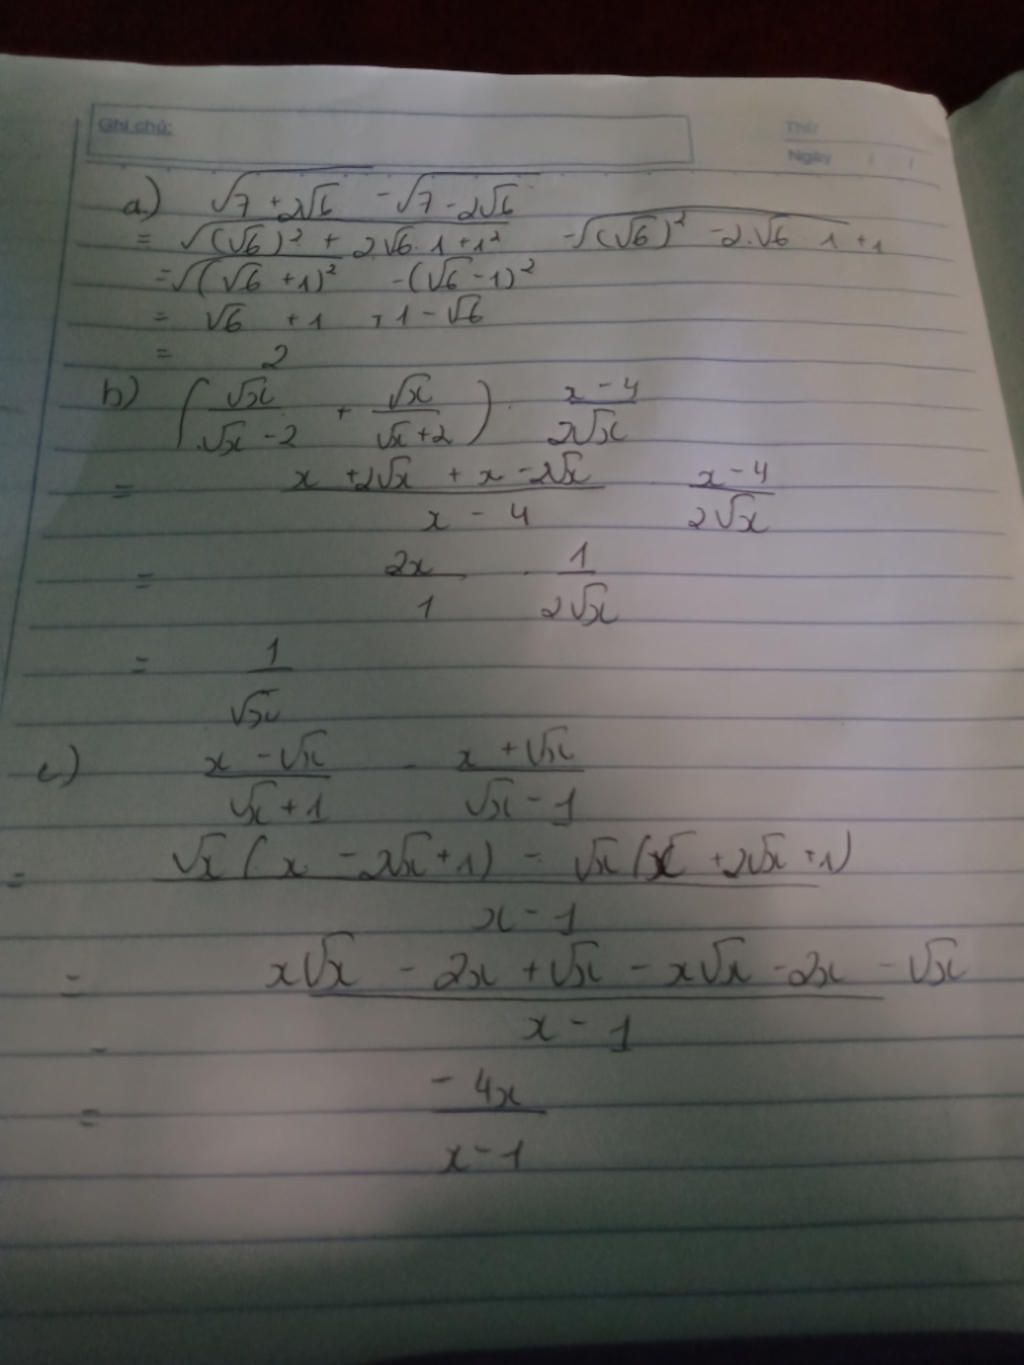 Ghi chú:
Thứ
Ngày / /
a) √(7 + 2√6) - √(7 - 2√6)
= √((√6)² + 2√6 · 1 + 1²) - √((√6)² - 2.√6 · 1 + 1)
= √(√6 + 1)² - (√6 - 1)²
= √6 + 1 + 1 - √6
= 2
b) (√x/(√x - 2) + √x/(√x + 2)) · (x - 4)/(2√x)
= (x + 2√x + x - 2√x)/(x - 4) (x - 4)/(2√x)
= 2x/1 · 1/(2√x)
= 1/√x
c) (x - √x)/(√x + 1) - (x + √x)/(√x - 1)
= (√x(x - 2√x + 1) - √x(x + 2√x + 1))/(x - 1)
= (x√x - 2x + √x - x√x - 2x - √x)/(x - 1)
= (-4x)/(x - 1)